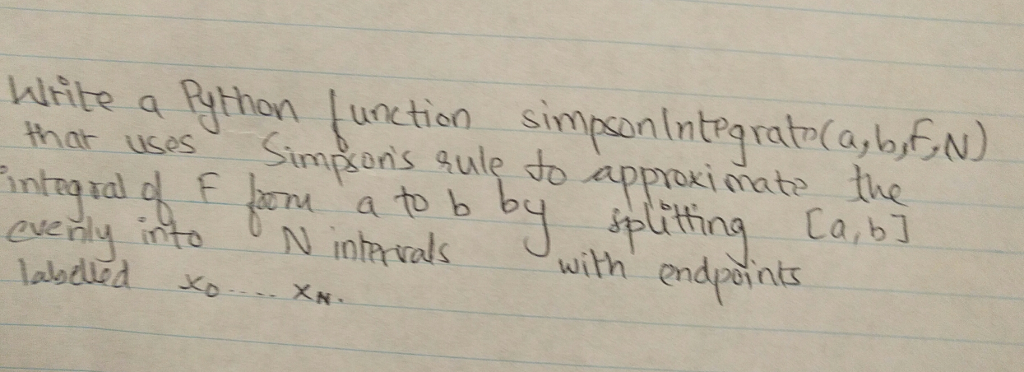 Write a Python function simpsonIntegrato(a,b,F,N)
that uses Simpson's rule to approximate the
integral of F from a to b by splitting [a,b]
evenly into N intervals with endpoints
labelled x0.... xN.